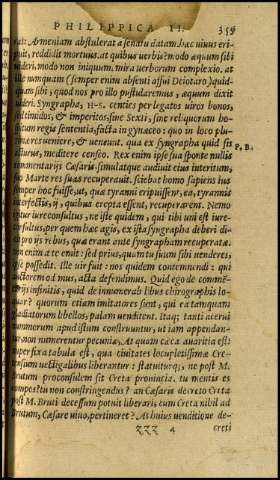 PHILIPPICA II. 359
rat: Armeniam abstulerat a senatu datam: hæc uiuus eri-
puit, reddidit mortuus. at quibus uerbis? modo æquum sibi
uideri, modo non iniquum. mira uerborum complexio. at
ille nunquam (semper enim absenti affui Deiotaro) quid-
quam sibi, quod nos pro illo postularemus, æquum dixit
uideri. Syngrapha, H-S. centies per legatos uiros bonos,
sed timidos, & imperitos, sine Sexti, sine reliquorum ho-
spitum regis sententia, facta in gynæceo: quo in loco plu-
rimæ res ueniere, & ueneunt. qua ex syngrapha quid sis
acturus, meditere censeo. Rex enim ipse sua sponte nullis P, B.
commentariis Cæsaris, simulatque audiuit eius interitum,
suo Marte res suas recuperauit. sciebat homo sapiens ius
semper hoc fuisse, ut, quæ tyranni eripuissent, ea, tyrannis
interfectis, ij, quibus erepta essent, recuperarent. Nemo
igitur iureconsultus, ne iste quidem, qui tibi uni est iure-
consultus, per quem hæc agis, ex ista syngrapha deberi di-
cit pro iis rebus, quæ erant ante syngrapham recuperatæ.
non enim a te emit: sed prius, quam tu suum sibi uenderes,
ipse possedit. Ille uir fuit: nos quidem contemnendi: qui
auctorem odimus, acta defendimus. Quid ego de comme-
tariis infinitis, quid de innumerab. libus chirographis lo-
quar? quorum etiam imitatores sunt, qui ea tamquam
gladiatorum libellos, palam uenditent. Itaq; tanti acerui
nummorum apud istum construuntur, ut iam appendan-
tur, non numerentur pecuniæ. At quam cæca auaritia est:
nuper fixa tabula est, qua ciuitates locupletissimæ Cre-
tensium uectigalibus liberantur: statuiturq; ne post M.
Brutum proconsulem sit Creta prouincia. tu mentis es
compos? tu non constringendus? an Cæsaris decreto Creta
post M. Bruti decessum potuit liberari, cum Creta nihil ad
Brutum, Cæsare uiuo, pertineret? At huius uenditione de-
ZZZ 4 creti